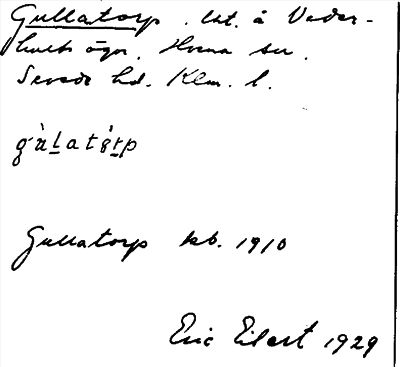 Gullatorp lht. å Veder-
hults ägor. Hvena sn.
Sevede hd. Klm. l.
gu̇̀l̲atȯ́r̲t̲p
Gullatorp kb. 1910
Eric Eilert 1929